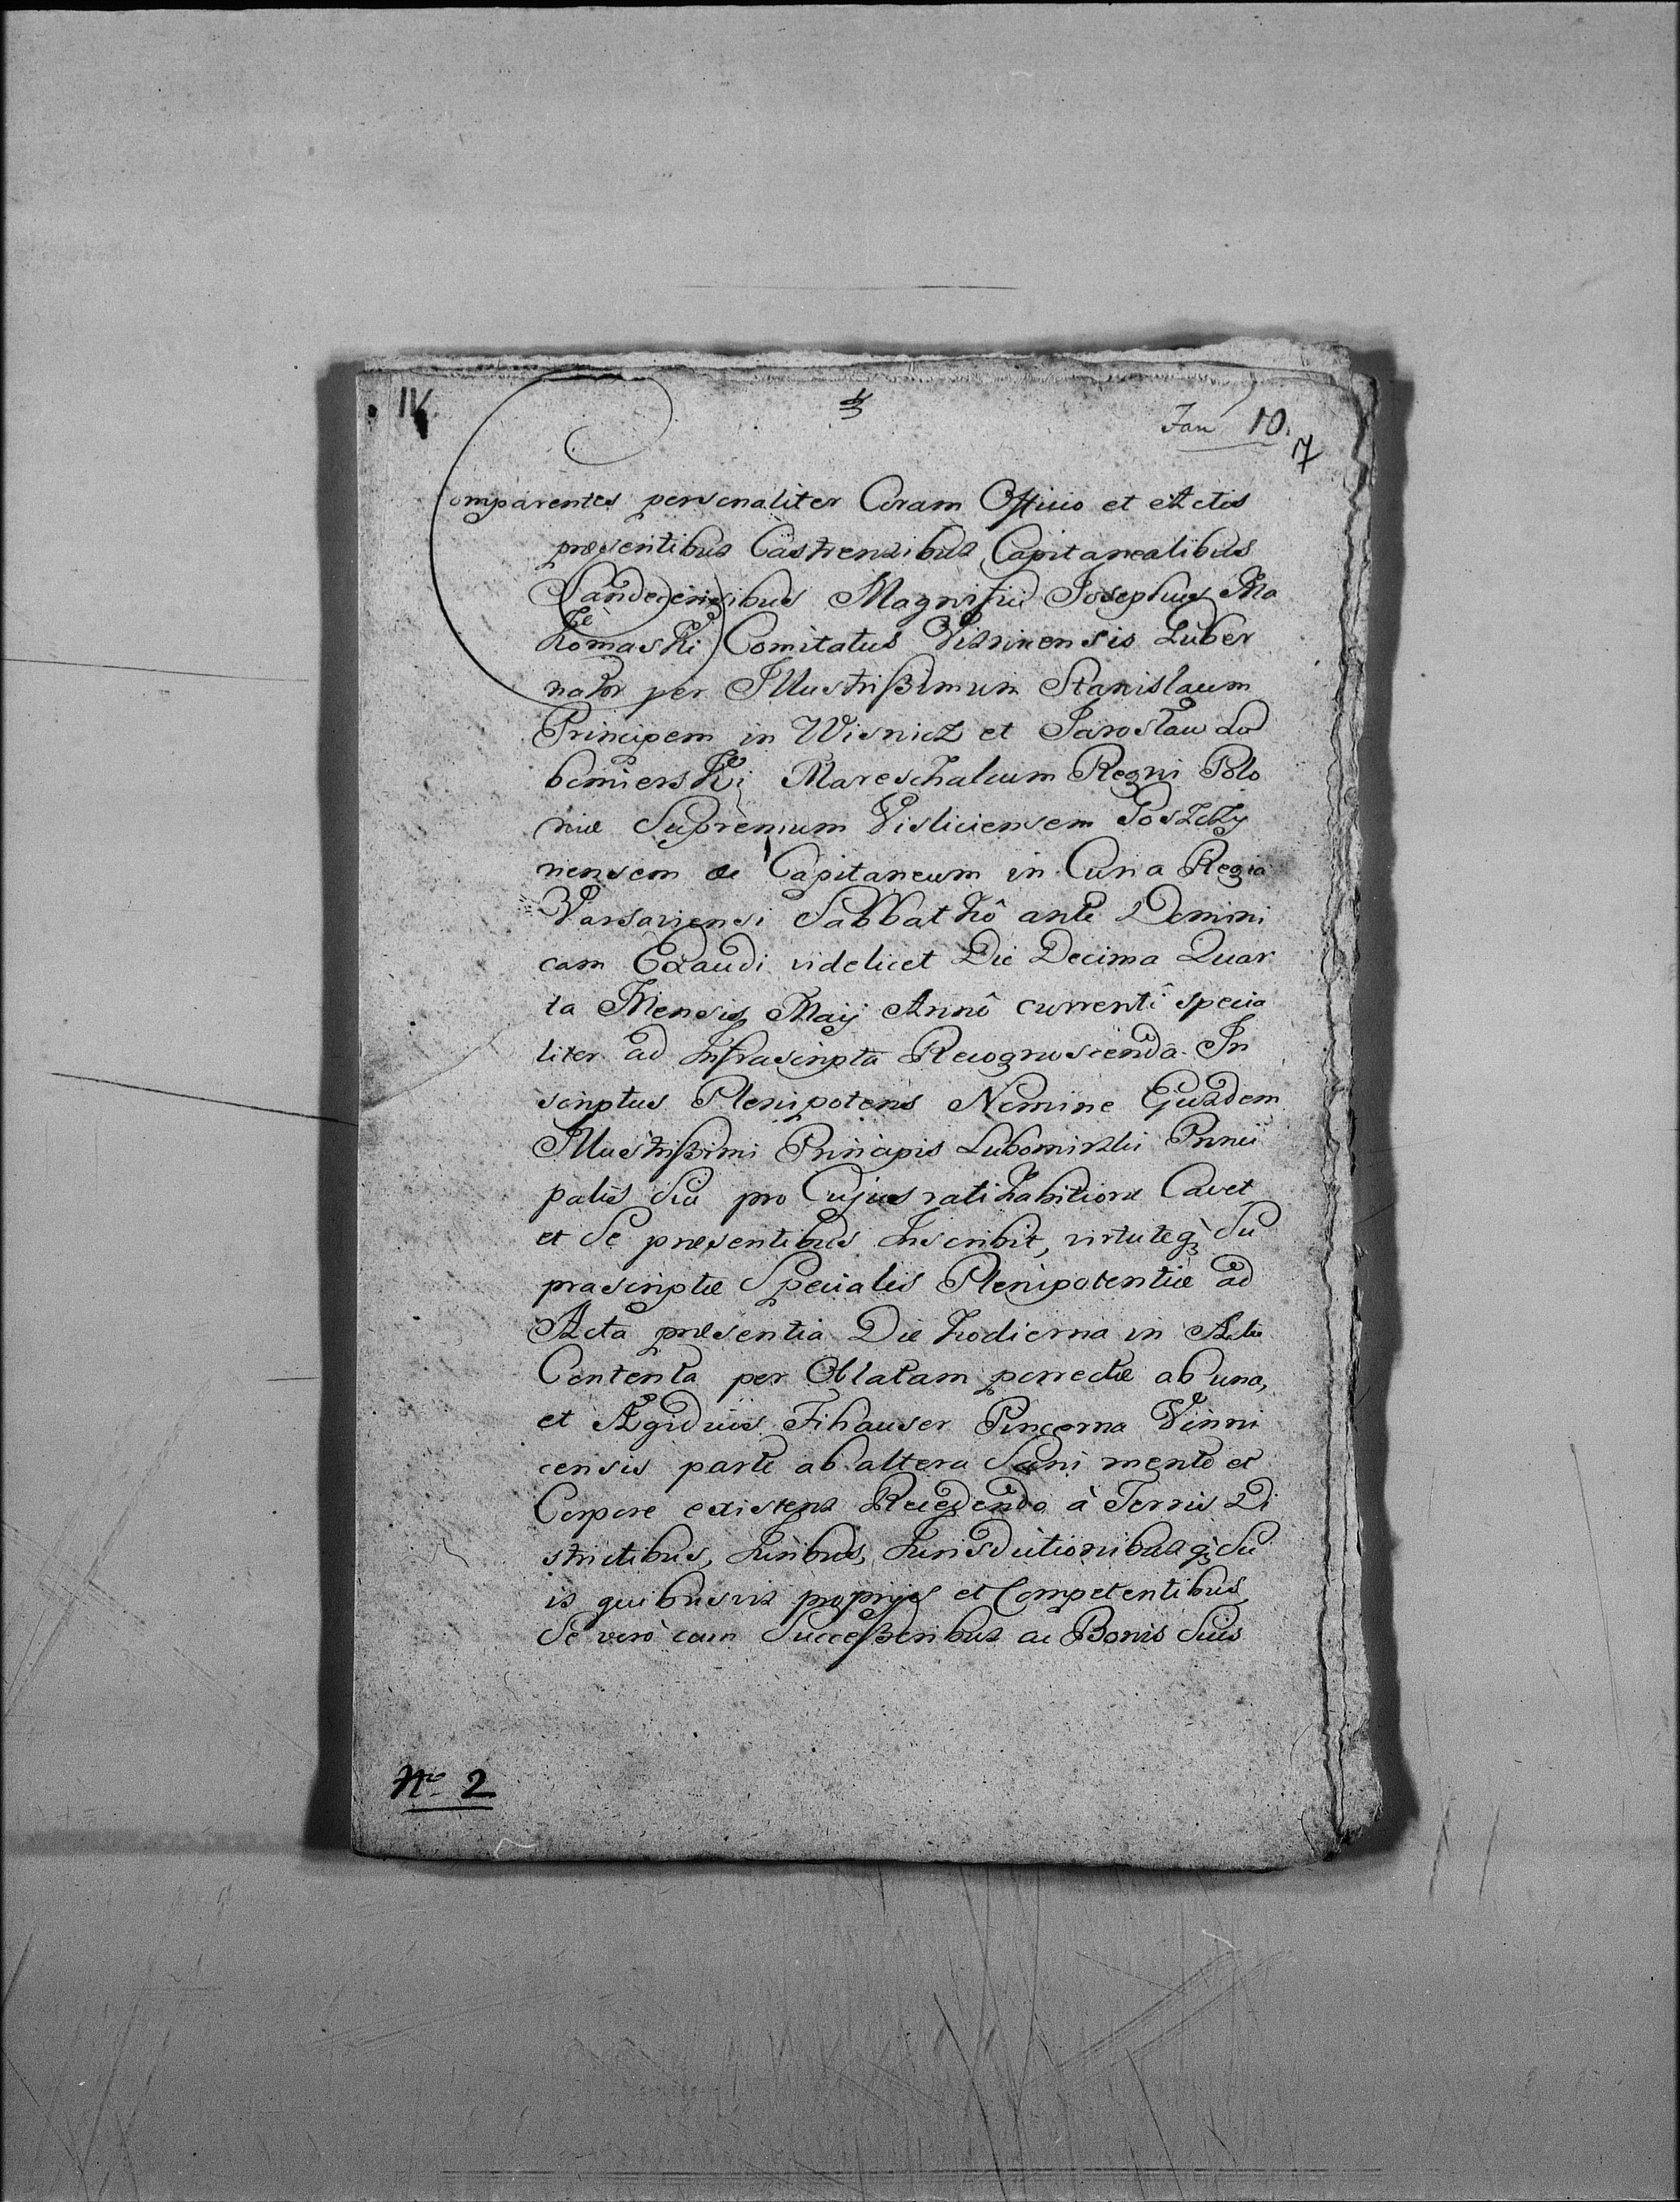 IV.
Jan 10.
17
Comparentes personaliter Coram Officio et Actis
præsentibus Castrensibus Capitanealibus
Sandecensibus Magnifici Josephus Ma
komaski Comitatus Visnicensis Guber
nator per Illustrißimum Stanislaum
Principem in Wisnicz et Jarosław Lu
bomierski Mareschalcum Regni Polo
niæ Supremum Visliciensem
nensem &c Capitaneum in Curia Regia
Varsaviensi Sabbathô ante Domini
cam Exaudi videlicet Die Decima Quar
ta Mensis Maij Annô currenti specia
liter ad Infrascripta Recognoscenda In
scriptus Plenipotens Nomine Ejusdem
Illustrißimi Principis Lubomirski Princi
palis Sui pro Cujus ratihabitione Cavet
et Se præsentibus Inscribit, virtuteq; Su
prascriptæ Specialis Plenipotentiæ ad
Acta præsentia Die hodierna in
Contenta per Oblatam porrectæ ab una,
et Ægidius Fihauser Pincerna Vinni
censis parte ab altera Sani mente et
Corpore existens Recedendo à Terris Di
strictibus, Juribus, Jurisdictionibusq; Su
is quibusvis proprys et Competentibus
Se verò cum Succeßoribus ac Bonis Suis
Nro 2